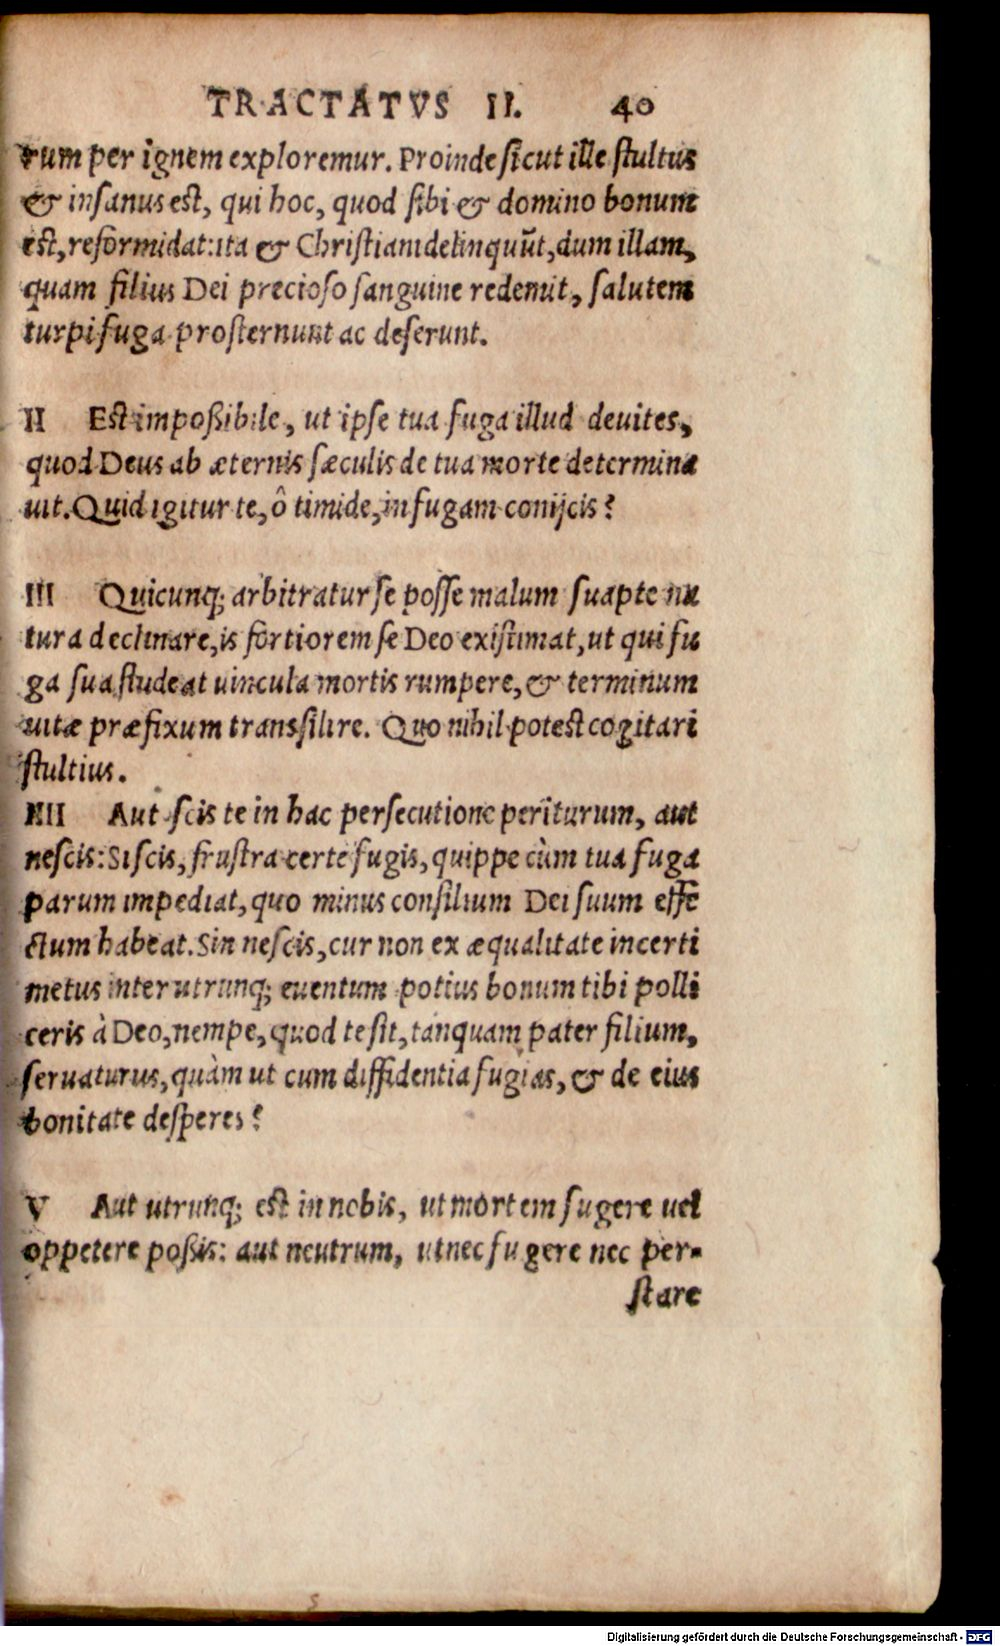 TRACTATVS II. 40
rum per ignem exploremur. Proinde sicut ille stultus
& insanus est, qui hoc, quod sibi & domino bonum
est, reformidat: ita & Christiani delinquūt, dum illam,
quam filius Dei precioso sanguine redemit, salutem
turpi fuga prosternunt ac deserunt.
II Est impoßibile, ut ipse tua fuga illud deuites,
quod Deus ab æternis sæculis de tua morte determina
uit. Quid igitur te, ô timide, in fugam conijcis?
III Quicunq; arbitratur se posse malum suapte na
tura declinare, is fortiorem se Deo existimat, ut qui fu
ga sua studeat uincula mortis rumpere, & terminum
uitæ præfixum transsilire. Quo nihil potest cogitari
stultius.
IIII Aut scis te in hac persecutione periturum, aut
nescis: Si scis, frustra certe fugis, quippe cùm tua fuga
parum impediat, quo minus consilium Dei suum effe
ctum habeat. Sin nescis, cur non ex æqualitate incerti
metus inter utrunq; euentum potius bonum tibi polli
ceris à Deo, nempe, quod te sit, tanquam pater filium,
seruaturus, quàm ut cum diffidentia fugias, & de eius
bonitate desperes?
V Aut utrunq; est in nobis, ut mortem fugere uel
oppetere poßis: aut neutrum, ut nec fugere nec per-
stare
Digitalisierung gefördert durch die Deutsche Forschungsgemeinschaft - DFG